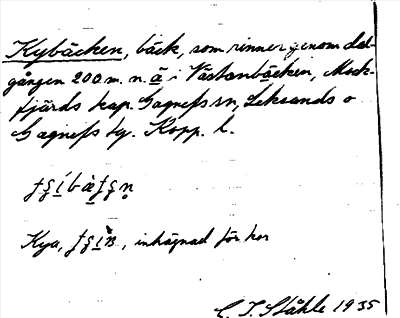 Kybäcken, bäck, som rinner genom dal-
gången 200 m. n. ä i Västanbäcken, Mock-
fjärds kap. Gagnefs sn, Leksands o
Gagnefs tg. Kopp. l.
Kya, inhägnad för kor
C. I. Ståhle 1935